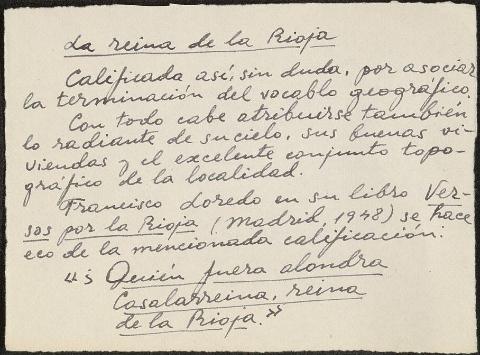 La reina de la Rioja
Calificada así, sin duda, por asociar
la terminación del vocablo geográfico.
Con todo cabe atribuirse también
lo radiante de su cielo, sus buenas vi-
viendas y el excelente conjunto topo-
gráfico de la localidad.
Francisco Loredo en su libro Ver-
sos por la Rioja (Madrid, 1948) se hace
eco de la mencionada calificación:
"¡ Quién fuera alondra
Casalarreina, reina
de la Rioja."